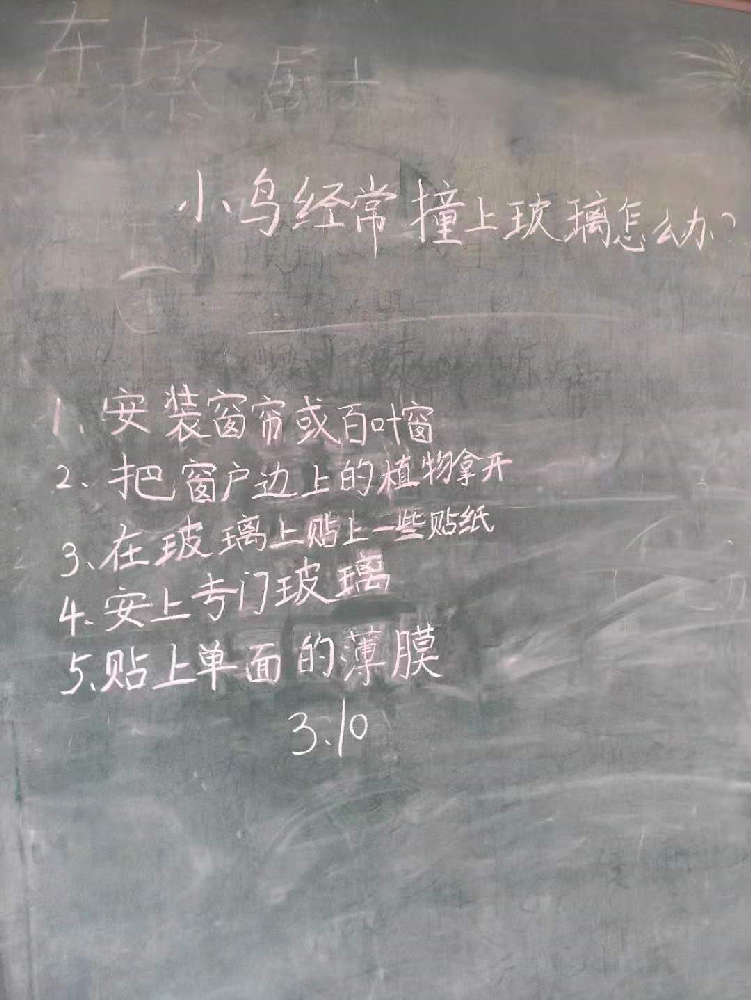 东坡居士
小鸟经常撞上玻璃怎么办?
1、安装窗帘或百叶窗
2、把窗户边上的植物拿开
3、在玻璃上贴上一些贴纸
4、安上专门玻璃
5、贴上单面的薄膜
3.10